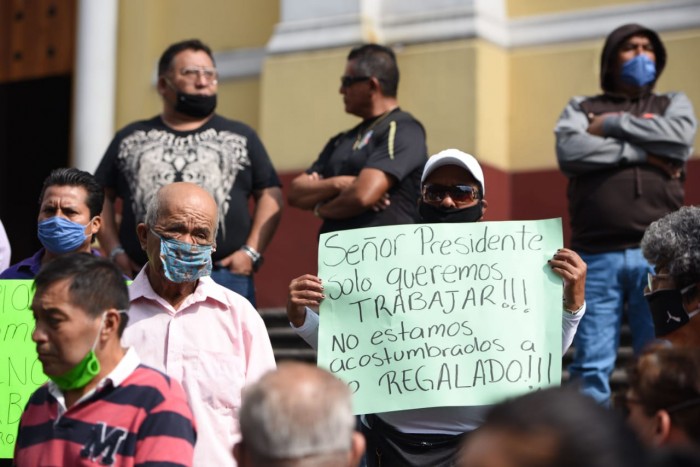 Señor Presidente
solo queremos
TRABAJAR!!!
no estamos
acostumbrados a
lo REGALADO!!!
M